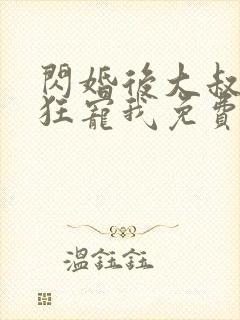 閃婚後大叔
狂寵我免費
溫鈺鈺